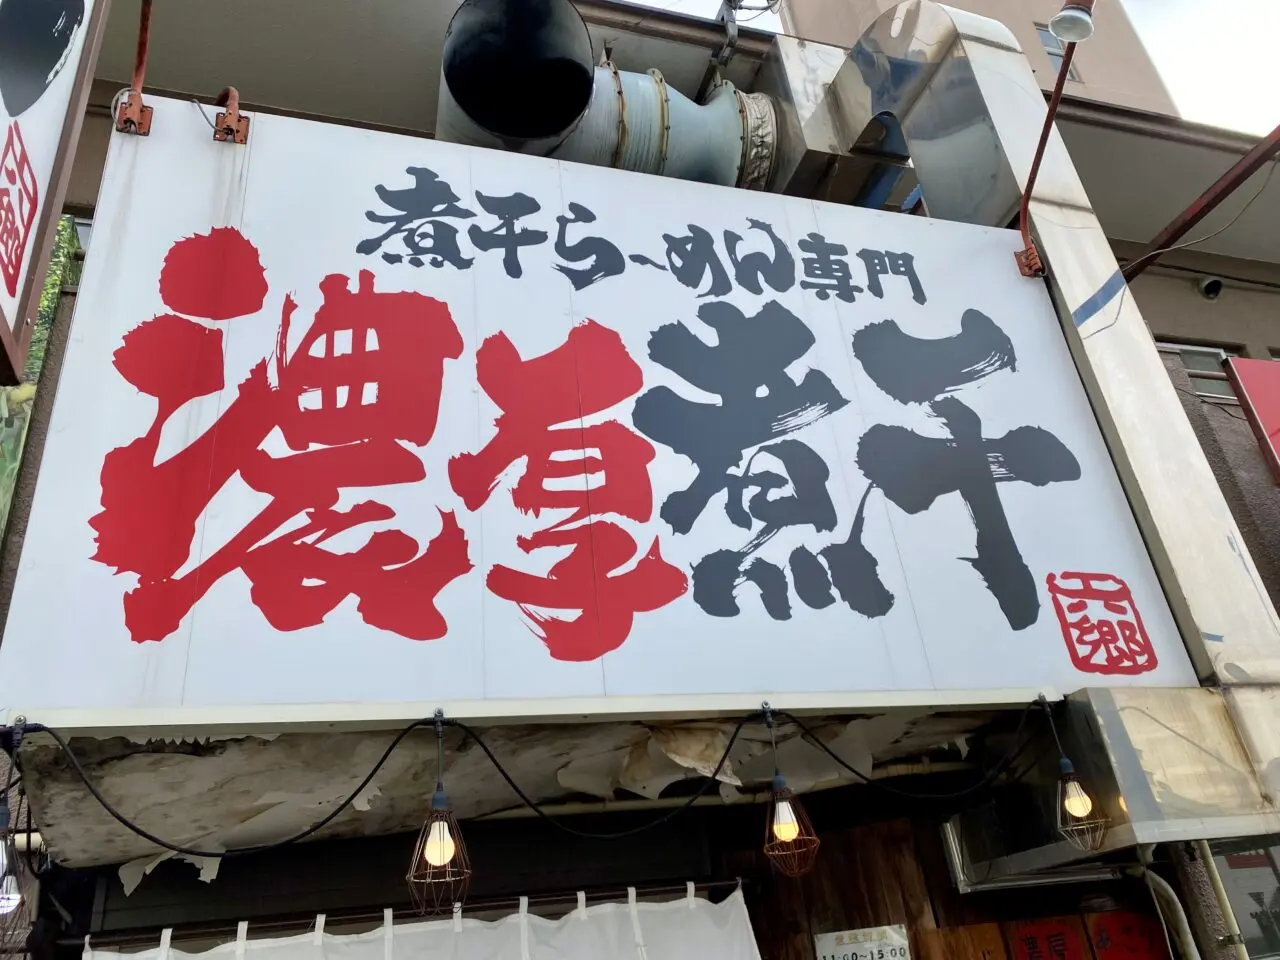 煮干らーめん専門
濃厚煮干
六郷
11:00~15:00
濃厚